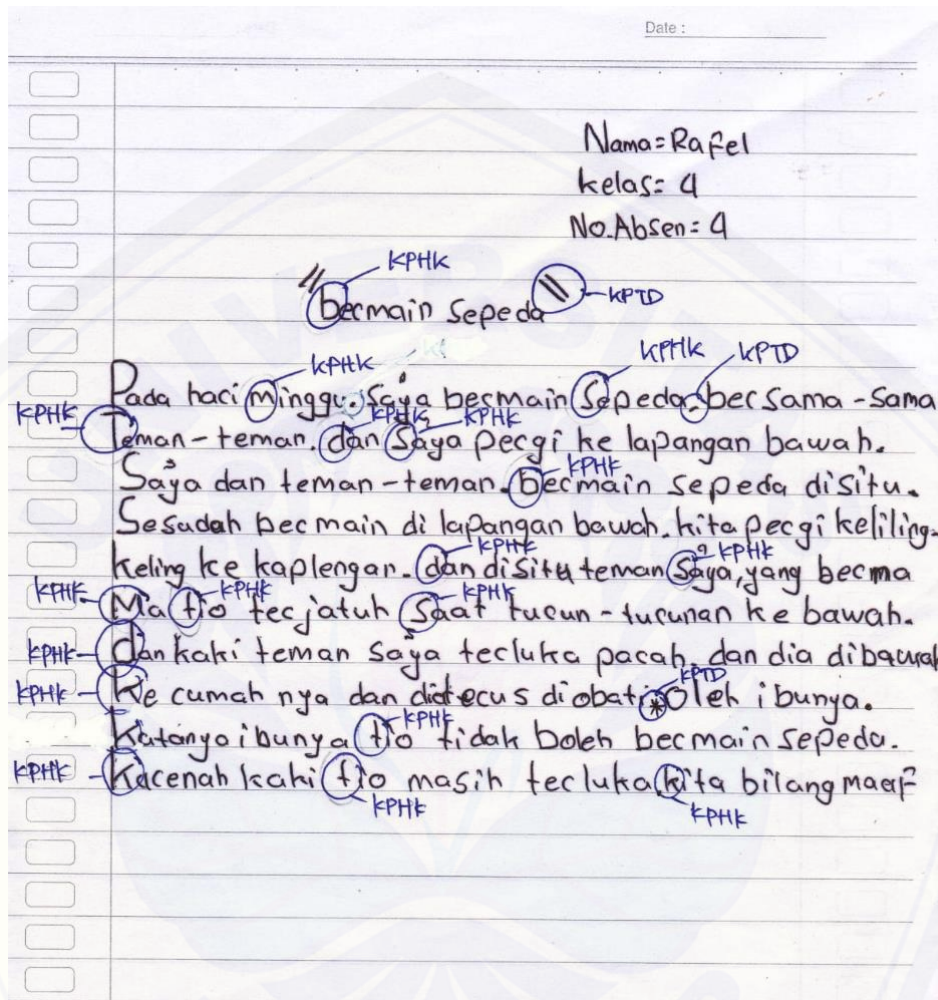 Date :
Nama = Rafel
kelas = 4
No. Absen = 4
KPHK
"bermain sepeda" KPTD
KPHK KPHK KPTD
Pada hari Minggu. Saya bermain Sepeda. bersama - sama
KPHK KPHK KPHK
Teman - teman. dan Saya pergi ke lapangan bawah.
KPHK
Saya dan teman - teman. bermain sepeda disitu.
Sesudah bermain di lapangan bawah. kita pergi keliling-
KPHK KPHK
keling ke kaplengan. dan disitu teman Saya, yang berma
KPHK KPHK KPHK
Ma tio terjatuh Saat turun - turunan ke bawah.
KPHK
dan kaki teman Saya terluka parah. dan dia dibawah
KPHK KPTD
Ke rumah nya dan diterus diobati * Oleh ibunya.
KPHK
Katanya ibunya tio tidak boleh bermain sepeda.
KPHK
Karenah kaki tio masih terluka, kita bilang maaf
KPHK KPHK